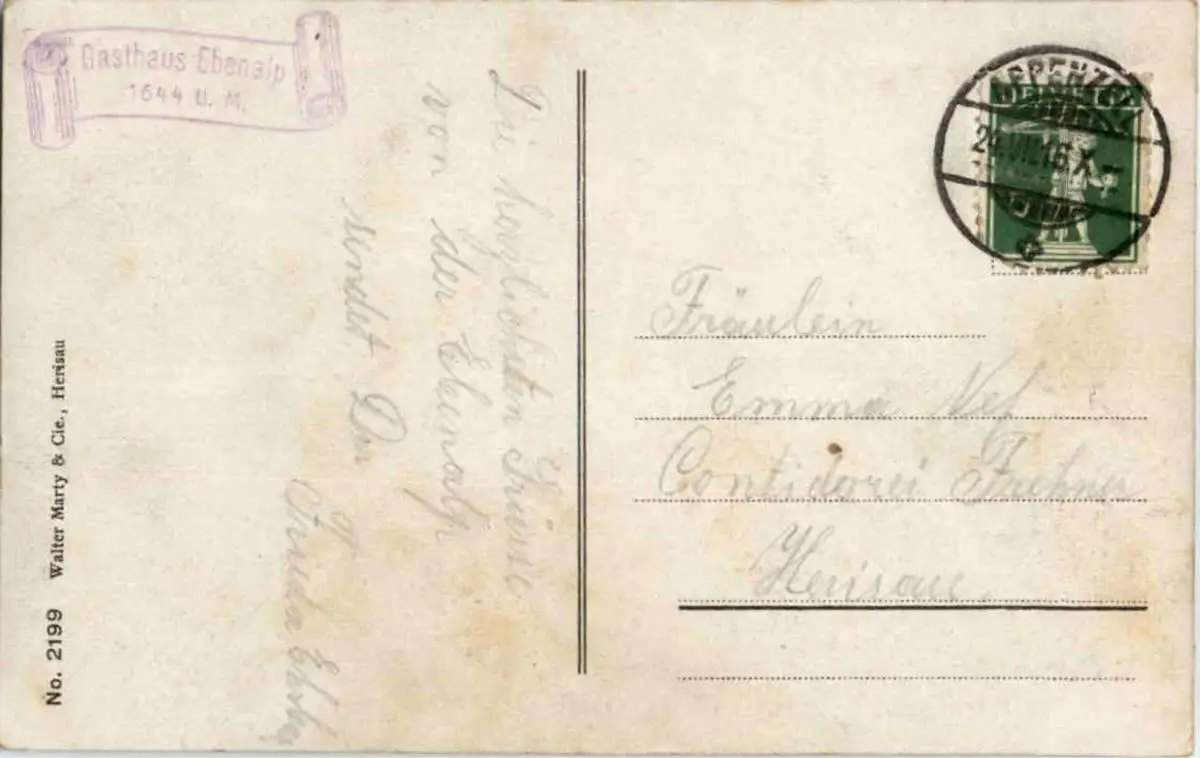 Gasthaus Ebenalp
1644 ü. M.
Die herzlichsten Grüsse
von der Ebenalp
sendet Dir
Frieda
No. 2199 Walter Marty & Cie., Herisau
APPENZELL
24.VII.16.X
Fräulein
Emma Nef
Herisau.